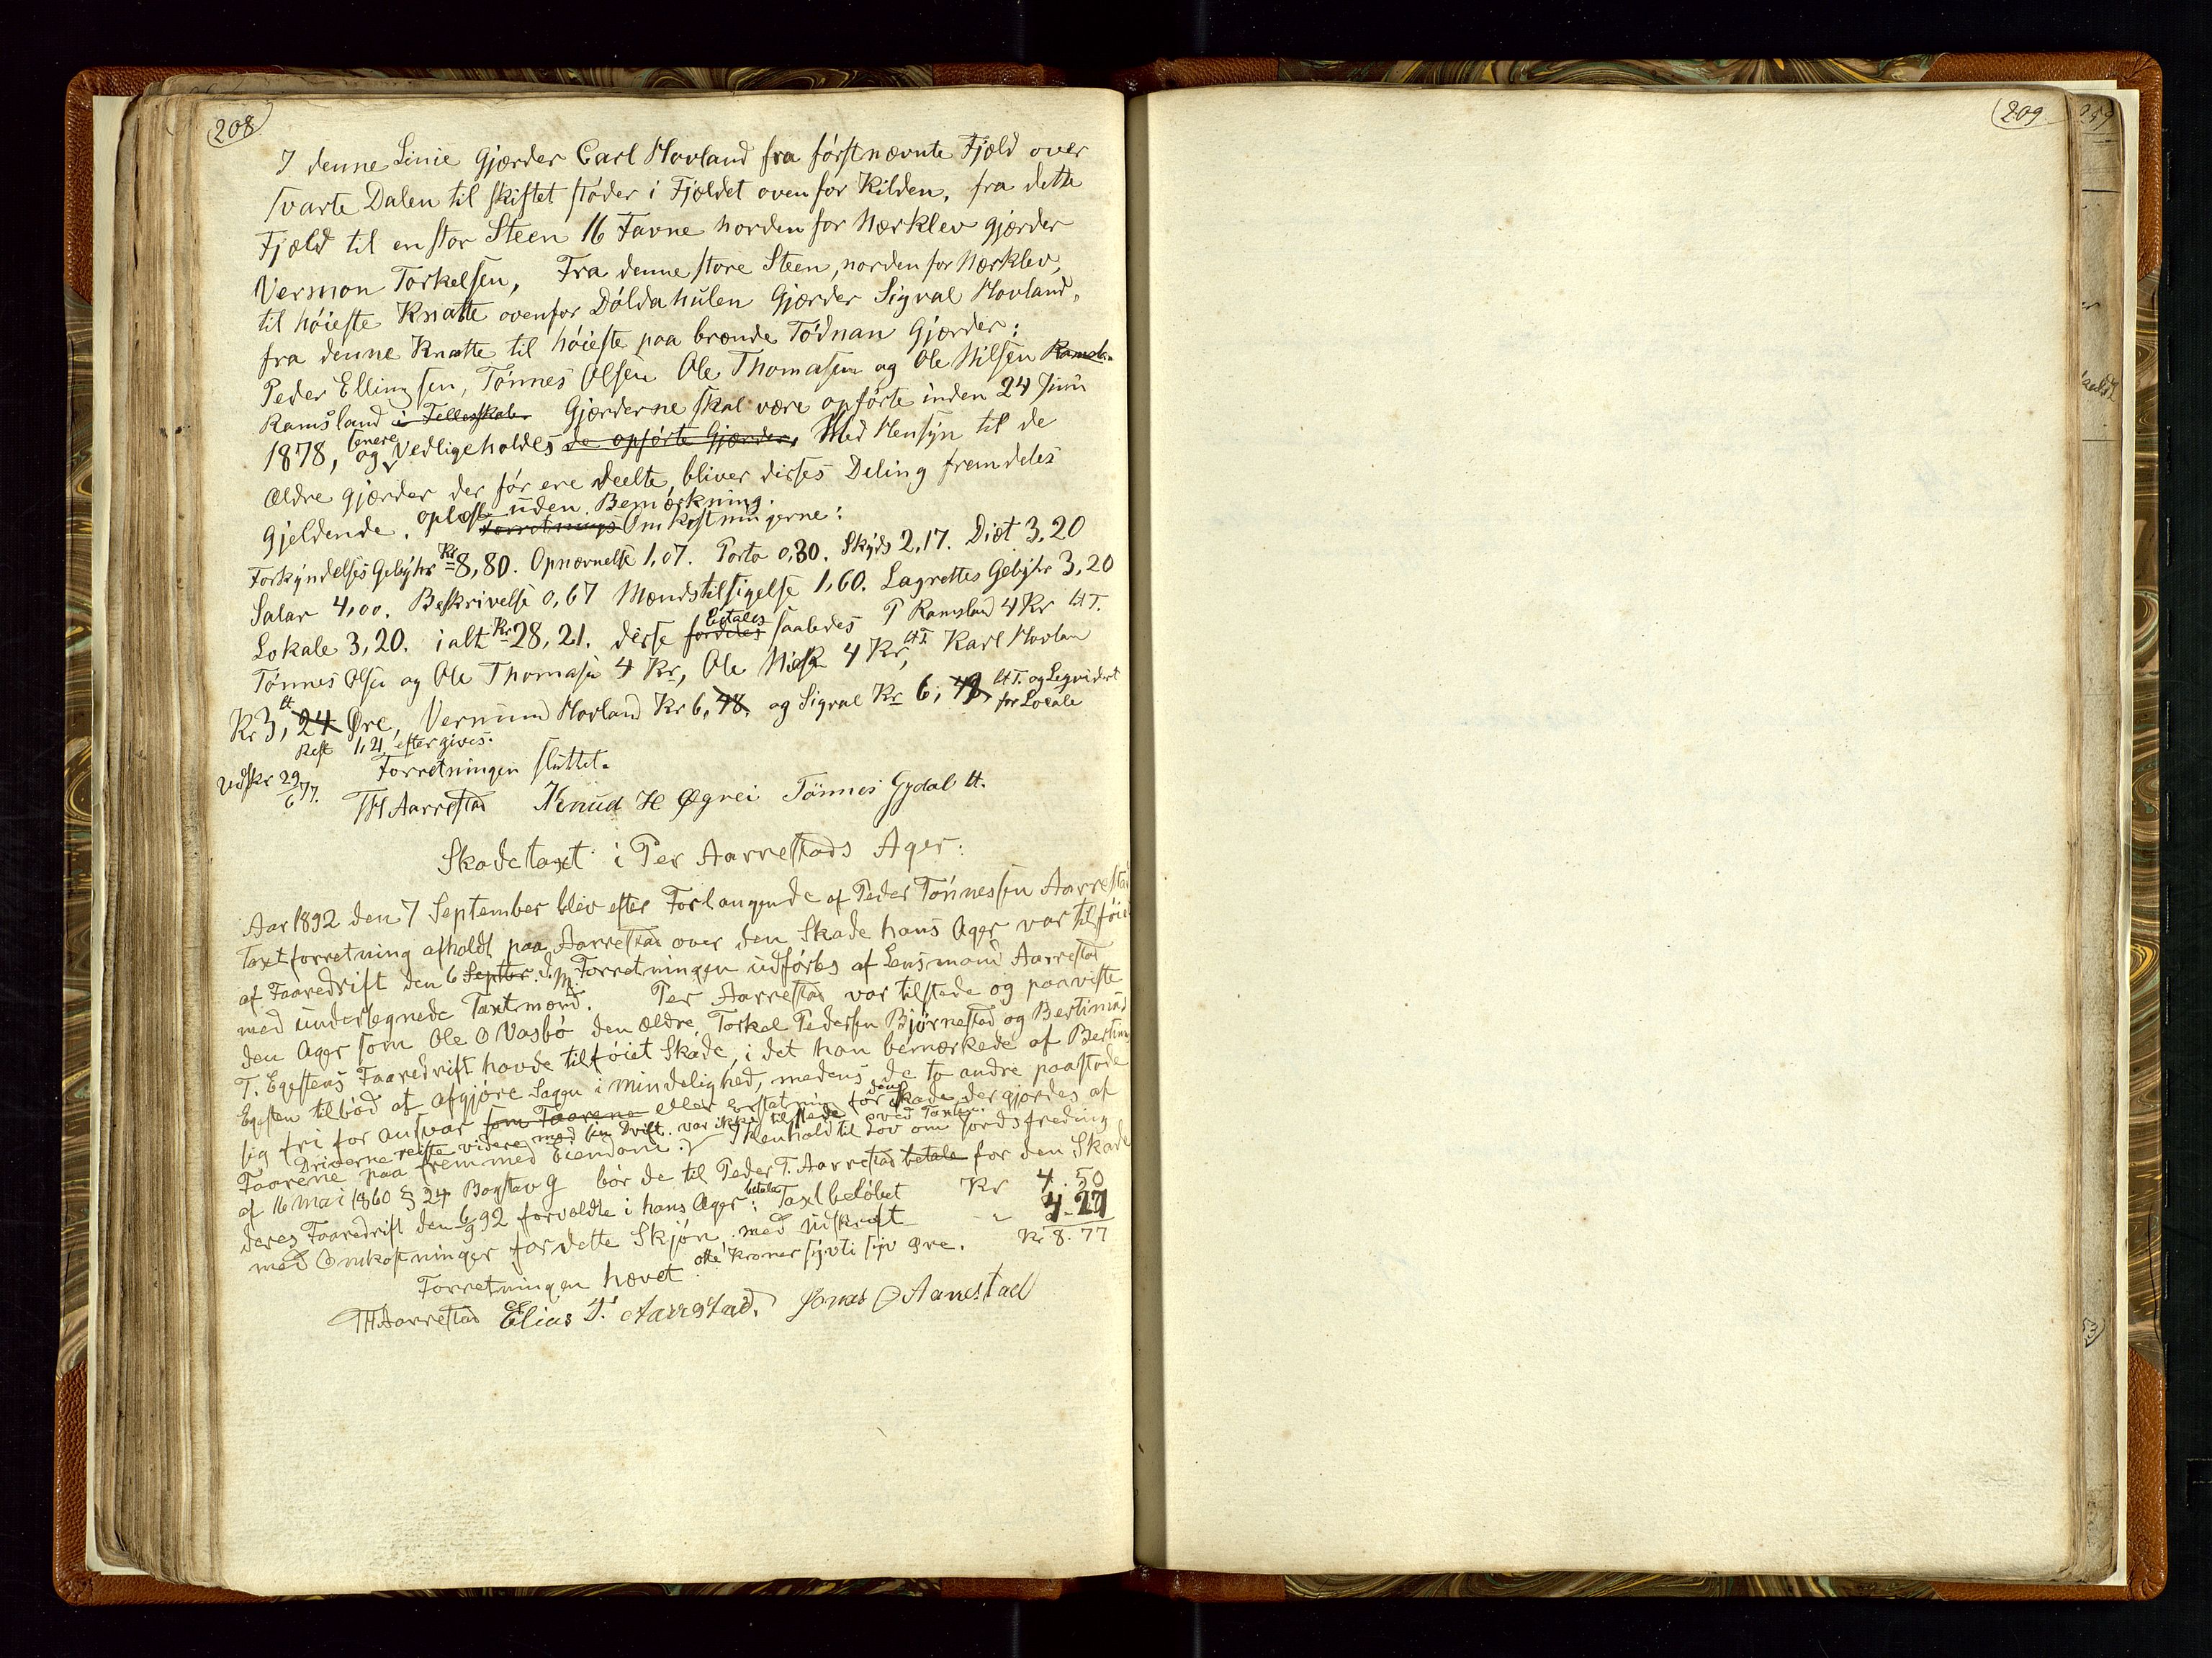 208
I denne Linie Gjærder Carl Hovland fra førstnævnte Fjeld over
svarte Dalen til skiftet støder i Fjeldet ovenfor Kilden, fra dette
Fjeld til en stor Steen 16 Favne norden for Nærklev gjærder
Vermon Torkelsen, Fra denne store Steen, norden for Nærklev,
til høieste Knatte ovenfor Dóldahulen Gjærder Sigval Hovland,
fra denne Knatte til høieste paa brænde Tødnan Gjærder:
Peder Ellingsen, Tønnes Olsen Ole Thomasen og Ole Nilsen
Ramsland i Fellesskab Gjærderne skal være opførte inden 24 Juni
1878, og senere Vedligeholdes de opførte Gjærder, Med Hensyn til de
ældre gjærder der før ere deelte, bliver disses Deling fremdeles
Gjeldende. oplæst uden Bemærkning.
Forretnings Omkostningerne:
Forkyndelses Gebyhr Kr 8,80. Opnævnelse 1,07. Porto 0,30. Skyds 2,17. Diæt 3,20
Salar 4,00. Beskrivelse 0,67 Mændstilsigelse 1,60. Lagrettes Gebyhr 3,20
Lokale 3,20. ialt Kr 28,21. disse fordeles betales saaledes P Ramsland 4 Kr bt T.
Tønnes Olsen og Ole Thomasen 4 Kr, Ole 4 Kr, bt T. Karl Hovlan
Kr 3, 24 Øre, Vermund Hovland Kr 6, 48, og Sigval Kr 6, 48, bt T. og Leqvidert
for Locale
Rest 1,21 eftergives.
Udskr 29/6 77. Forretningen sluttet.
TH Aarrestad Knud H Øgrei Tönnes Gydal bt.
Skadetaxt i Per Aarrestads Ager:
Aar 1892 den 7 September blev efter Forlangende af Peder Tønnessen Aarrestad
Taxtforretning afholdt paa Aarrestad over den Skade hans Ager var tilføiet
af Faaredrift den 6 Septbr. d. M. Forretningen udførtes af Lensmand Aarrestad
med undertegnede Taxtmænd. Per Aarrestad var tilstede og paaviste
den Ager som Ole O Vasbø den ældre, Torkel Pedersen Bjørnestad og Bertinius
T. Egestens Faaredrift havde tilføiet Skade, i det han bemærkede af Bertinius
Egesten tilbød at afgjøre Sagen i Mindelighed, medens de to andre paastode
sig fri for ansvar som Faarene eller erstatning for den skade, der gjordes af
Driverne reiste videre med sin Drift. var ikke tilstede ved Taxten.
Faarene paa fremmed Eiendom. I Henhold til Lov om Jords fredning
af 16 Mai 1860 § 24 Bogstav g bør de til Peder T. Aarrestad betale for den Skade
deres Faaredrift den 6/9 92 forvoldte i hans Ager betale: Taxtbeløbet Kr 4.50
med Omkostninger for dette Skjøn, med udskrift - " 4.27
otte Kroner sytti syv Øre. Kr 8.77
Forretningen hævet
TH Aarrestad Elias T. Aarrestad, Jonas O Aanestad
209